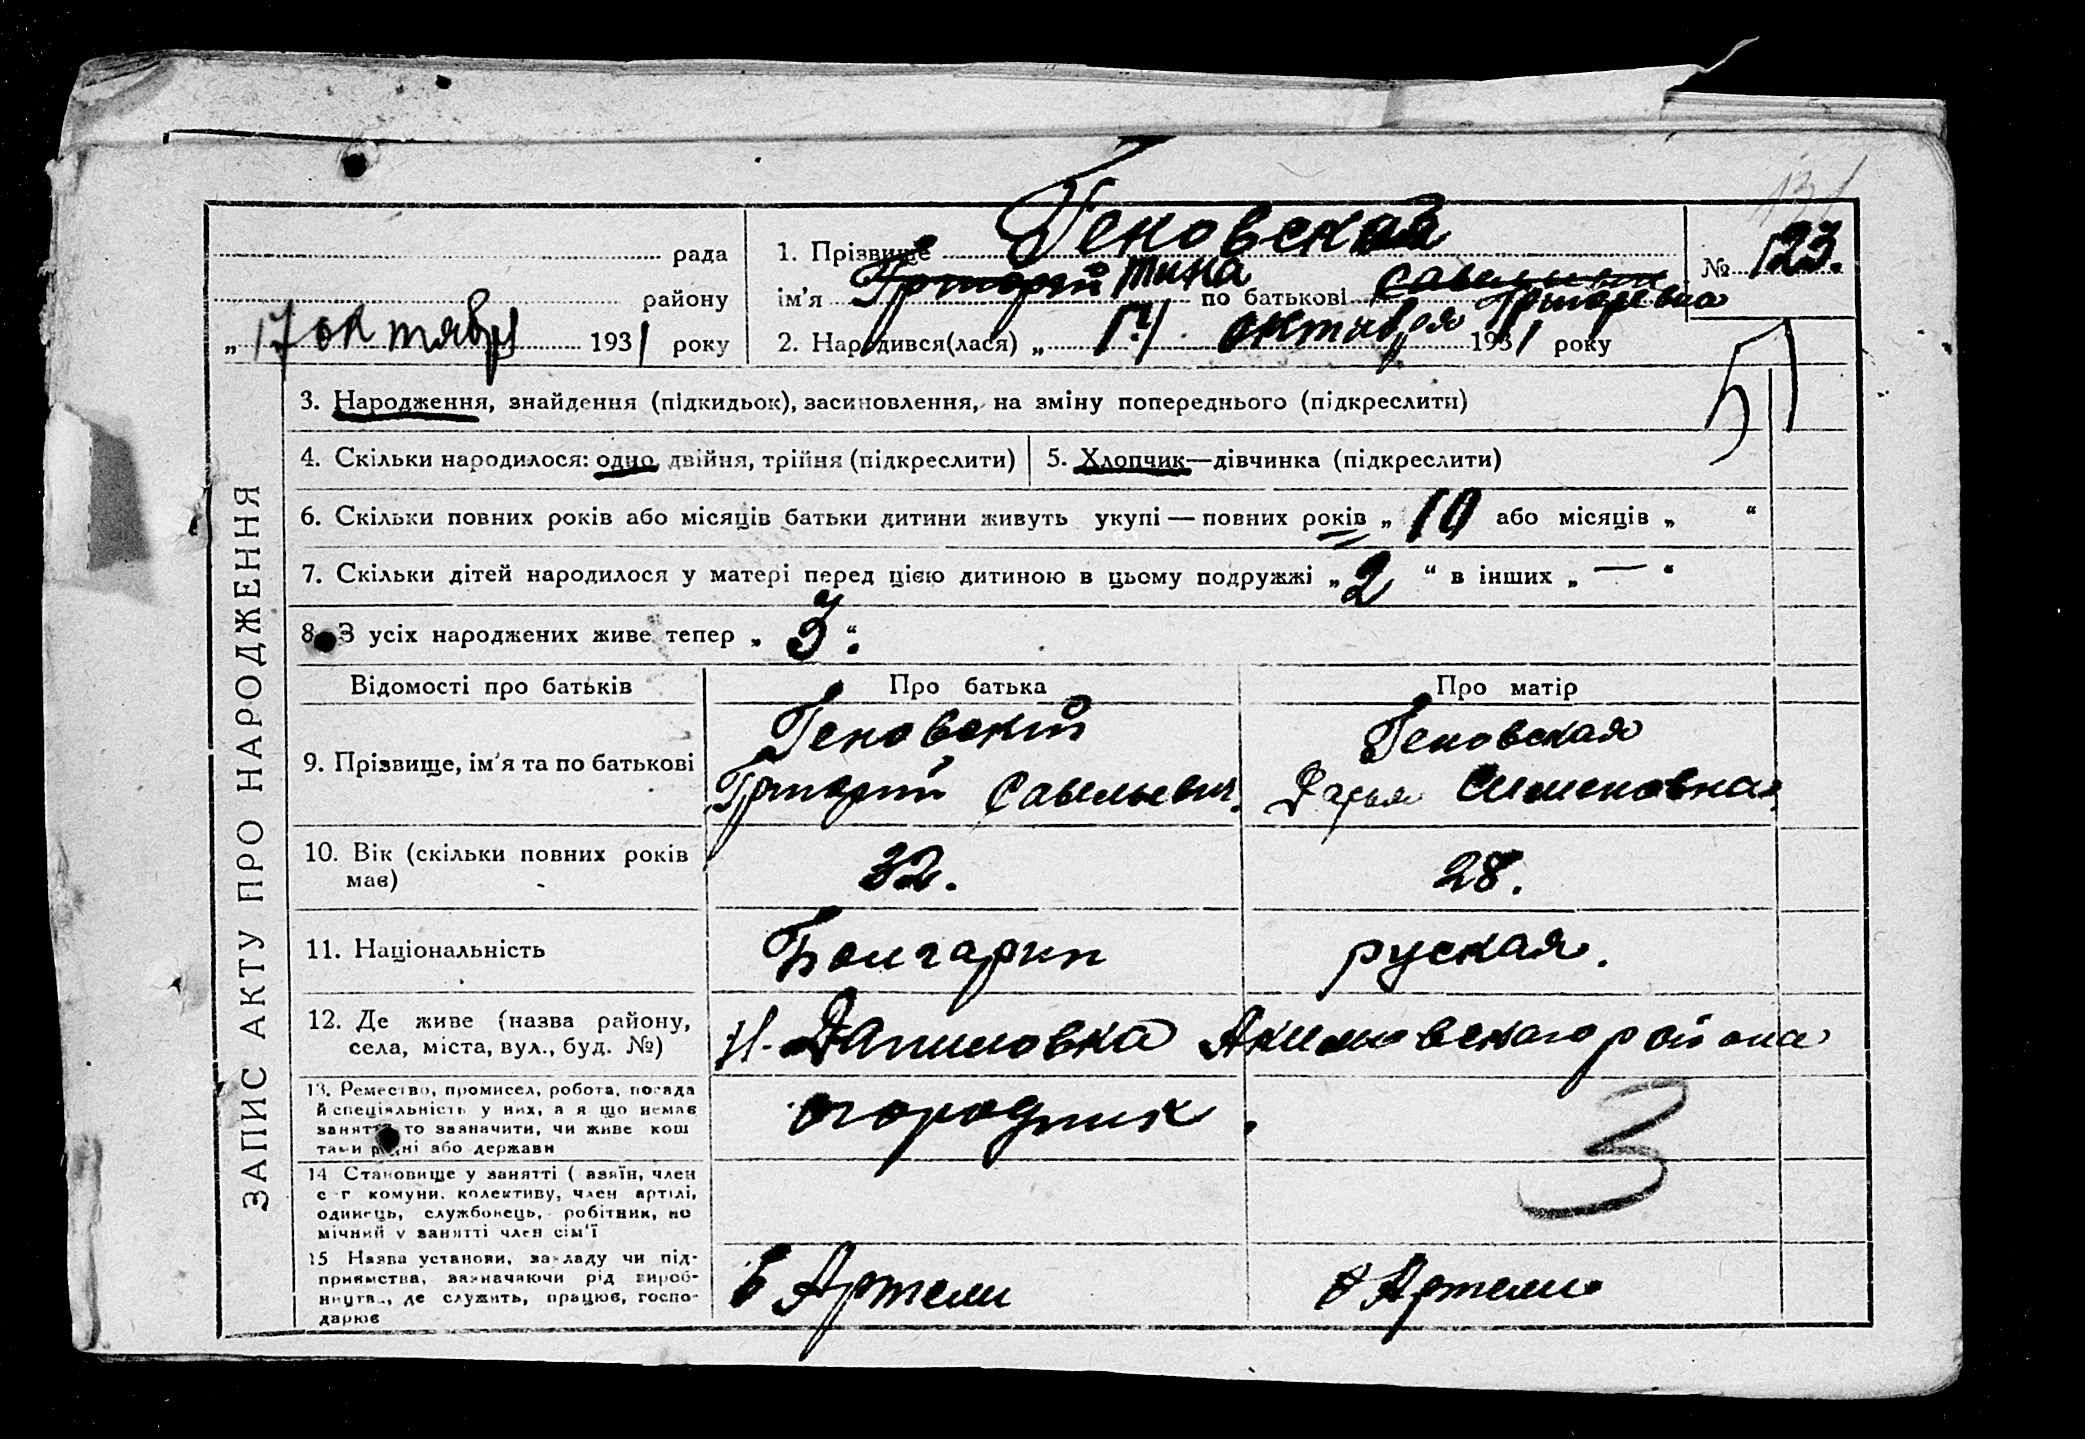 131
рада
району
„ 17 октября 1931 року
1. Прізвище Геновская
№ 123.
ім'я Григорій Тина по батькові Григоревна
2. Народився(лася) „ октября 1931 року
3. Народження, знайдення (підкидьок), засиновлення, на зміну попереднього (підкреслити)
4. Скільки народилося: одно, двійня, трійня (підкреслити)
5. Хлопчик—дівчинка (підкреслити)
6. Скільки повних років або місяців батьки дитини живуть укупі — повних років „ 10 або місяців „ “
7. Скільки дітей народилося у матері перед цією дитиною в цьому подружжі „ 2 “ в інших „ — “
8. З усіх народжених живе тепер „ 3 “
ЗАПИС АКТУ ПРО НАРОДЖЕННЯ
Відомості про батьків
Про батька
Про матір
9. Прізвище, ім'я та по батькові
Геновскій
Григорій Савельевич.
Геновская
Дарья Сименовная
10. Вік (скільки повних років
має)
32.
28.
11. Національність
Болгарин
руская.
12. Де живе (назва району,
села, міста, вул., буд. №)
Н. Даниловка Акимовскаго района
13. Ремество, промисел, робота, посада
й спеціяльність у них, а я що немає
заняття то зазначити, чи живе кош
тами рідні або держави
огородник.
3
14 Становище у занятті ( азяїн, член
с г комуни, колективу, член артілі,
одинець, службовець, робітник, по
мічний у занятті член сім'ї
15 Назва установи, закладу чи під-
приємства, зазначаючи рід вироб-
ництв., де служить, працює, госпо-
дарює
в Артели
в Артели